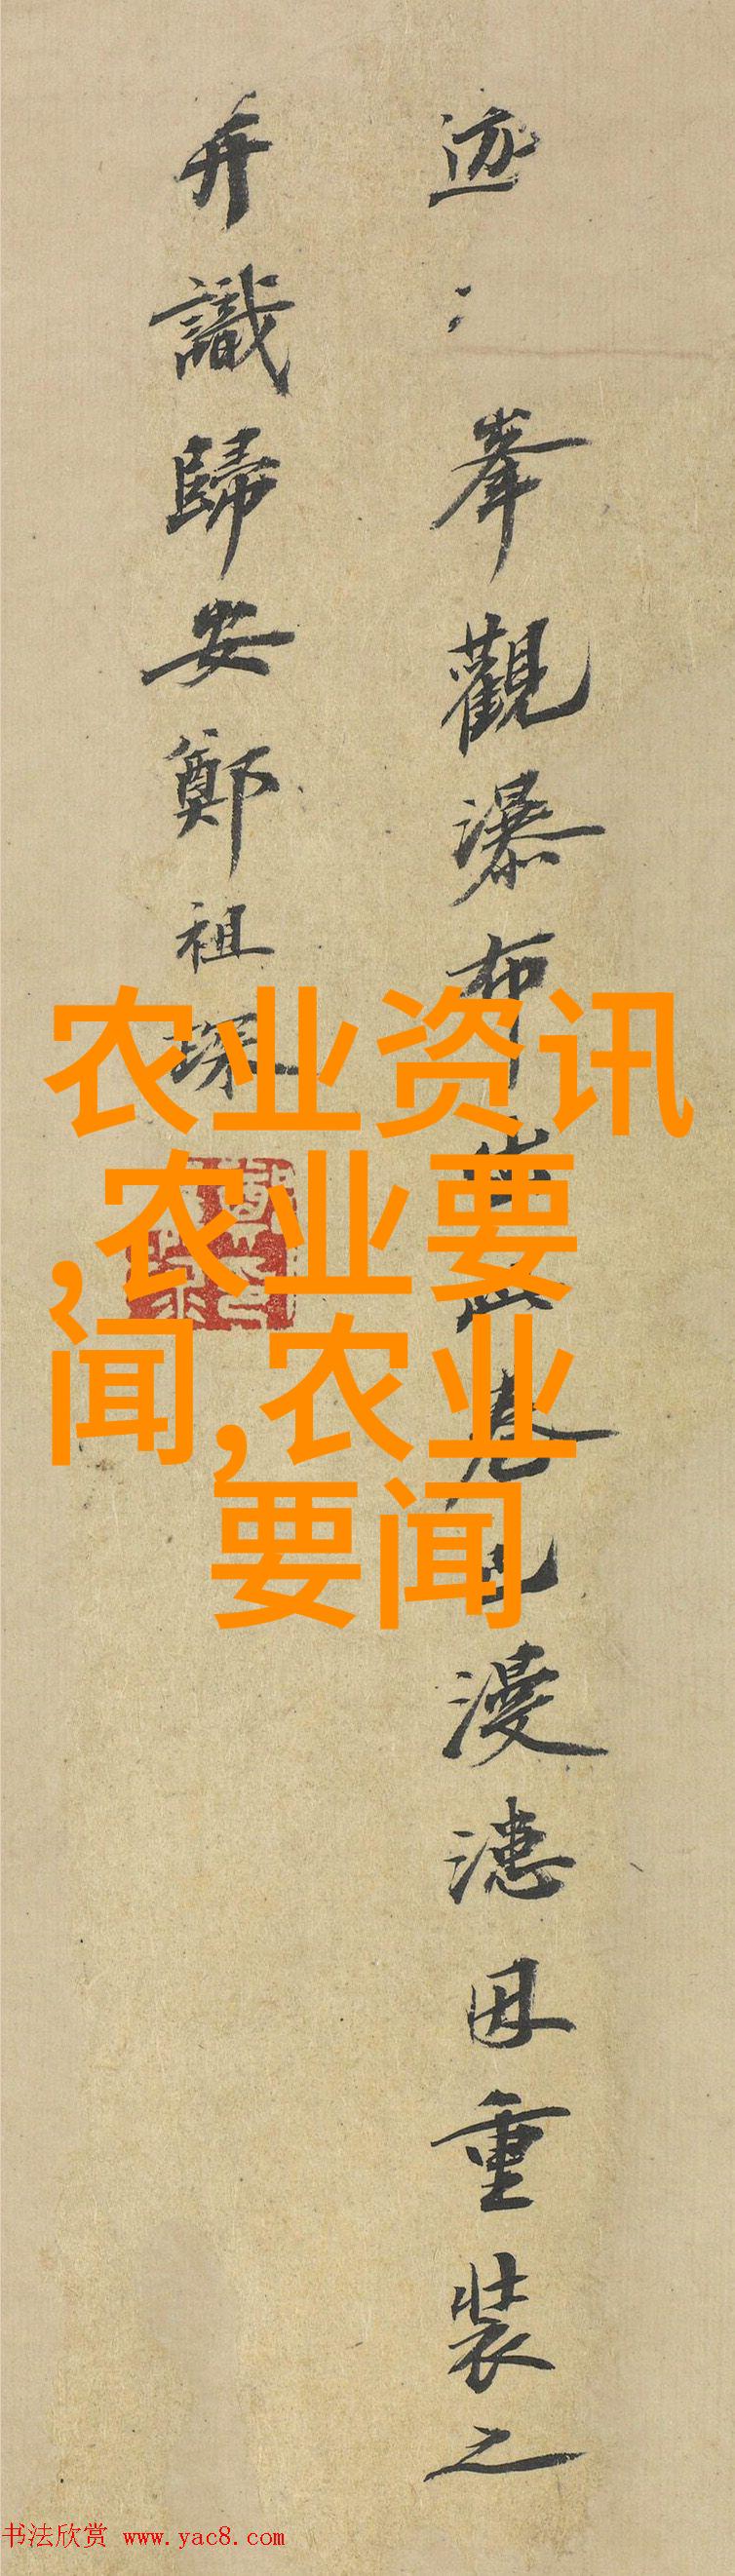 迹〻峯觀瀑布
卷已漫漶因重裝之
并識歸安鄭祖琛
农业资讯
,农业要
闻,农业
要闻
书法欣赏 www.yac8.com